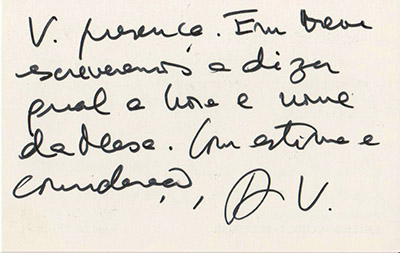 V. presença. Em breve
escreveremos a dizer
qual a hora e nome
da Mesa. Com estima e
consideração,
V.